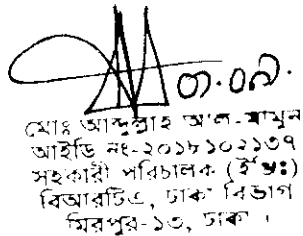 ০৩.০৯.
মোঃ আব্দুল্লাহ আল-মামুন
আইডি নং-২০১৮১০২১৩৭
সহকারী পরিচালক (ইঞ্জিঃ)
বিআরটিএ, ঢাকা বিভাগ
মিরপুর-১৩, ঢাকা ।